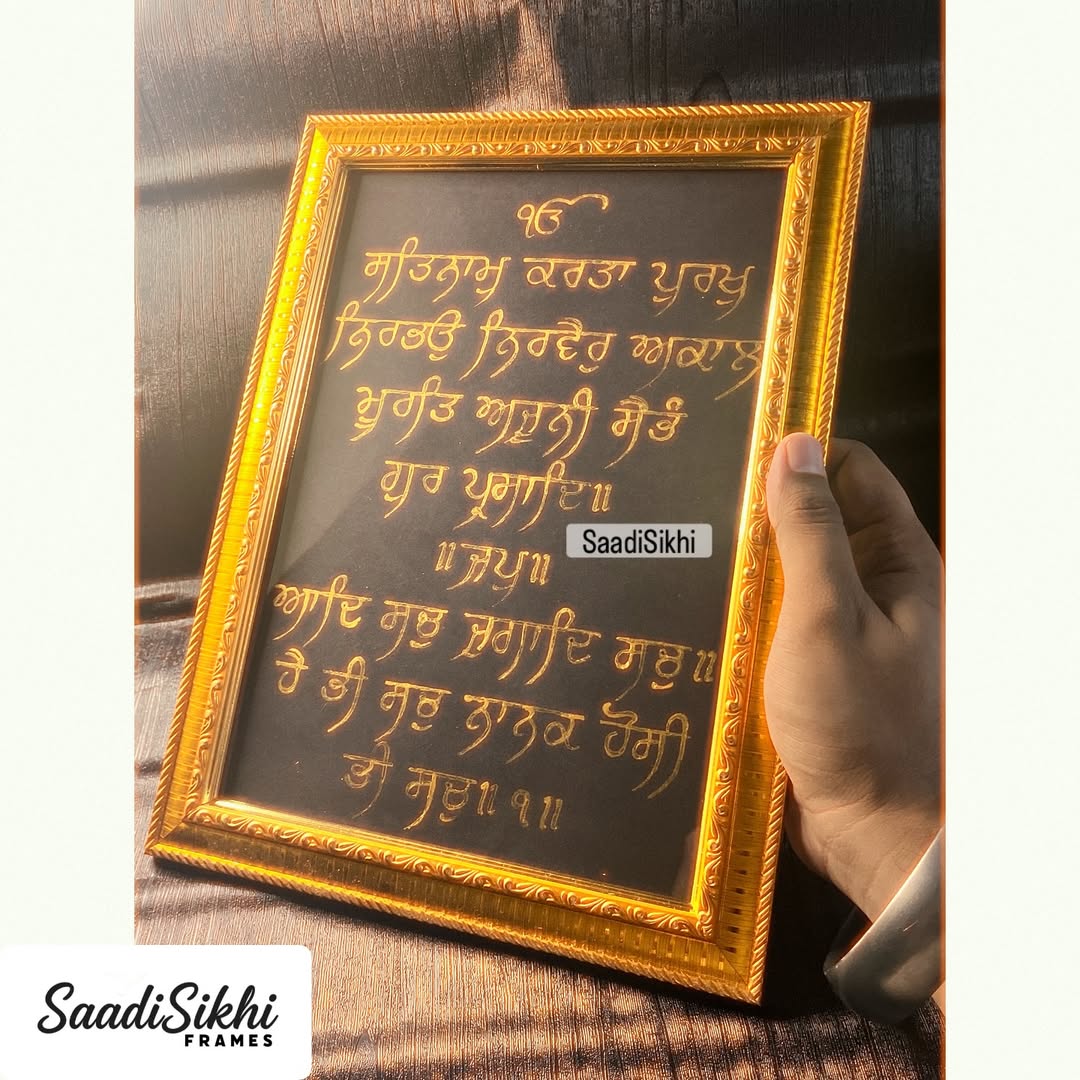 ੴ
ਸਤਿਨਾਮੁ ਕਰਤਾ ਪੁਰਖੁ
ਨਿਰਭਉ ਨਿਰਵੈਰੁ ਅਕਾਲ
ਮੂਰਤਿ ਅਜੂਨੀ ਸੈਭੰ
ਗੁਰ ਪ੍ਰਸਾਦਿ॥
॥ਜਪੁ॥
ਆਦਿ ਸਚੁ ਜੁਗਾਦਿ ਸਚੁ॥
ਹੈ ਭੀ ਸਚੁ ਨਾਨਕ ਹੋਸੀ
ਭੀ ਸਚੁ॥੧॥
SaadiSikhi
SaadiSikhi
FRAMES